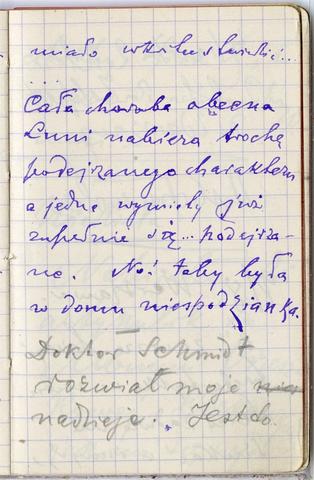 miało
....
Cała choroba obecna
Luni nabiera trochę
podejrzanego charakteru
a jedne wymioty już
zupełnie są... podejrza-
ne. No! taby była
w domu niespodzianka.
Doktór Schmidt
rozwiał moje
nadzieje. Jest to